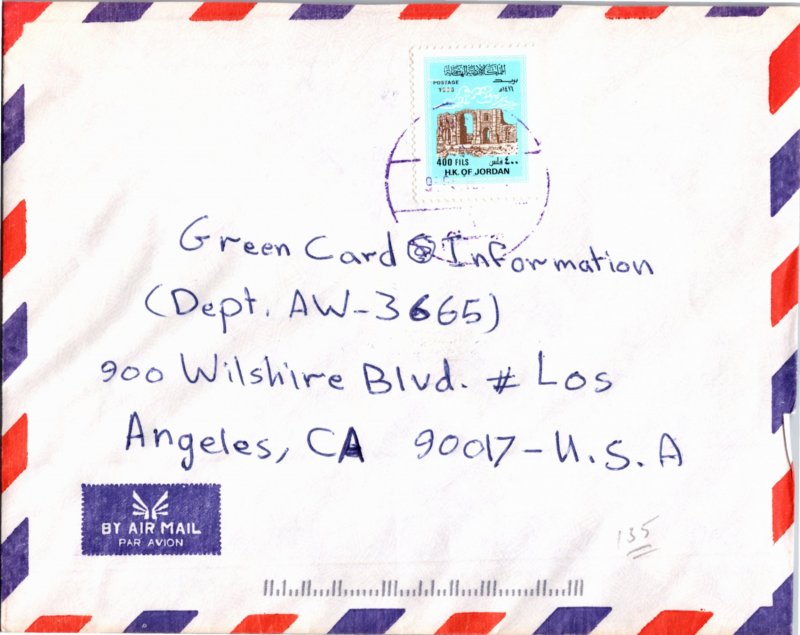 المملكة الأردنية الهاشمية
POSTAGE بريد
400 FILS ٤٠٠ فلس
H.K. OF JORDAN
Green Card Information
(Dept. AW-3665)
900 Wilshire Blvd. # Los
Angeles, CA 90017-U.S.A
BY AIR MAIL
PAR AVION
135